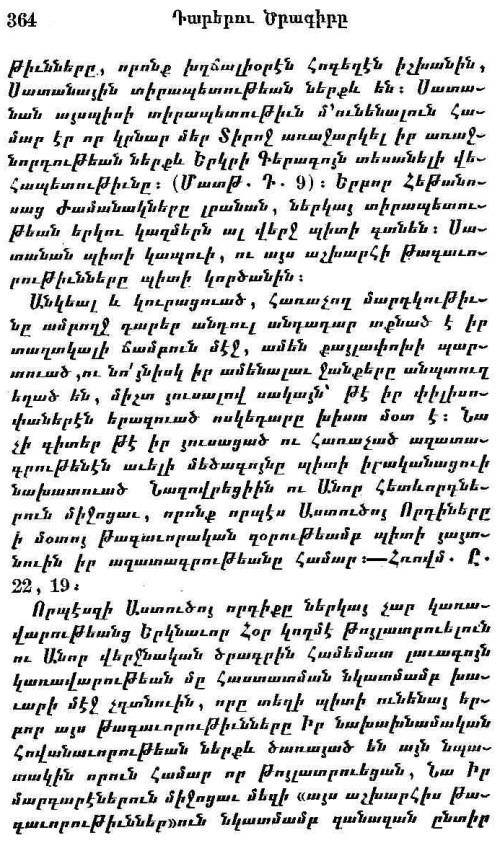 364 Դարերու Ծրագիրը
թիւնները, որոնք խղճալիօրէն հոգեղէն իշխանին,
Սատանային տիրապետութեան ներքև են։ Սատա-
նան այսպիսի տիրապետութիւն մ՚ունենալուն հա-
մար էր որ կրնար մեր Տիրոջ առաջարկել իր առաջ-
նորդութեան ներքև երկրի գերագոյն տեսանելի վե-
հապետութիւնը։ (Մատթ. Դ. 9)։ Երբոր Հեթանո-
սաց ժամանակները լրանան, ներկայ տիրապետու-
թեան երկու կազմերն ալ վերջ պիտի գտնեն։ Սա-
տանան պիտի կապուի, ու այս աշխարհի թագաւո-
րութիւնները պիտի կործանին։
Անկեալ և կուրացուած, հառաչող մարդկութիւ-
նը ամբողջ դարեր անդուլ անդադար տքնած է իր
տաղտկալի ճամբուն մէջ, ամեն քայլափոխի պար-
տուած, ու նո՛յնիսկ իր ամենալաւ ջանքերը անպտուղ
եղած են, միշտ յուսալով սակայն՝ թէ իր փիլիսո-
փաներէն երազուած ոսկեդարը խիստ մօտ է։ Նա
չի գիտեր թէ իր յուսացած ու հառաչած ազատա-
գրութենէն աւելի մեծագոյնը պիտի իրականացուի
նախատուած Նազովրեցիին ու Անոր հետևորդնե-
րուն միջոցաւ, որոնք որպէս Աստուծոյ Որդիները
ի մօտոյ թագաւորական զօրութեամբ պիտի յայտ-
նուին իր ազատագրութեանը համար։—Հռովմ. Ը.
22, 19։
Որպէսզի Աստուծոյ որդիքը ներկայ չար կառա-
վարութեանց Երկնաւոր Հօր կողմէ թոյլատրուելուն
ու Անոր վերջնական ծրագրին համեմատ լաւագոյն
կառավարութեան մը հաստատման նկատմամբ խա-
ւարի մէջ չգտնուին, որը տեղի պիտի ունենայ եր-
բոր այս թագաւորութիւնները Իր նախախնամական
հովանաւորութեան ներքև ծառայած են այն նպա-
տակին որուն համար որ թոյլատրուեցան, Նա Իր
մարդարէներուն միջոցաւ մեզի «այս աշխարհիս թա-
գաւորութիւններ»ուն նկատմամբ զանազան ընտիր